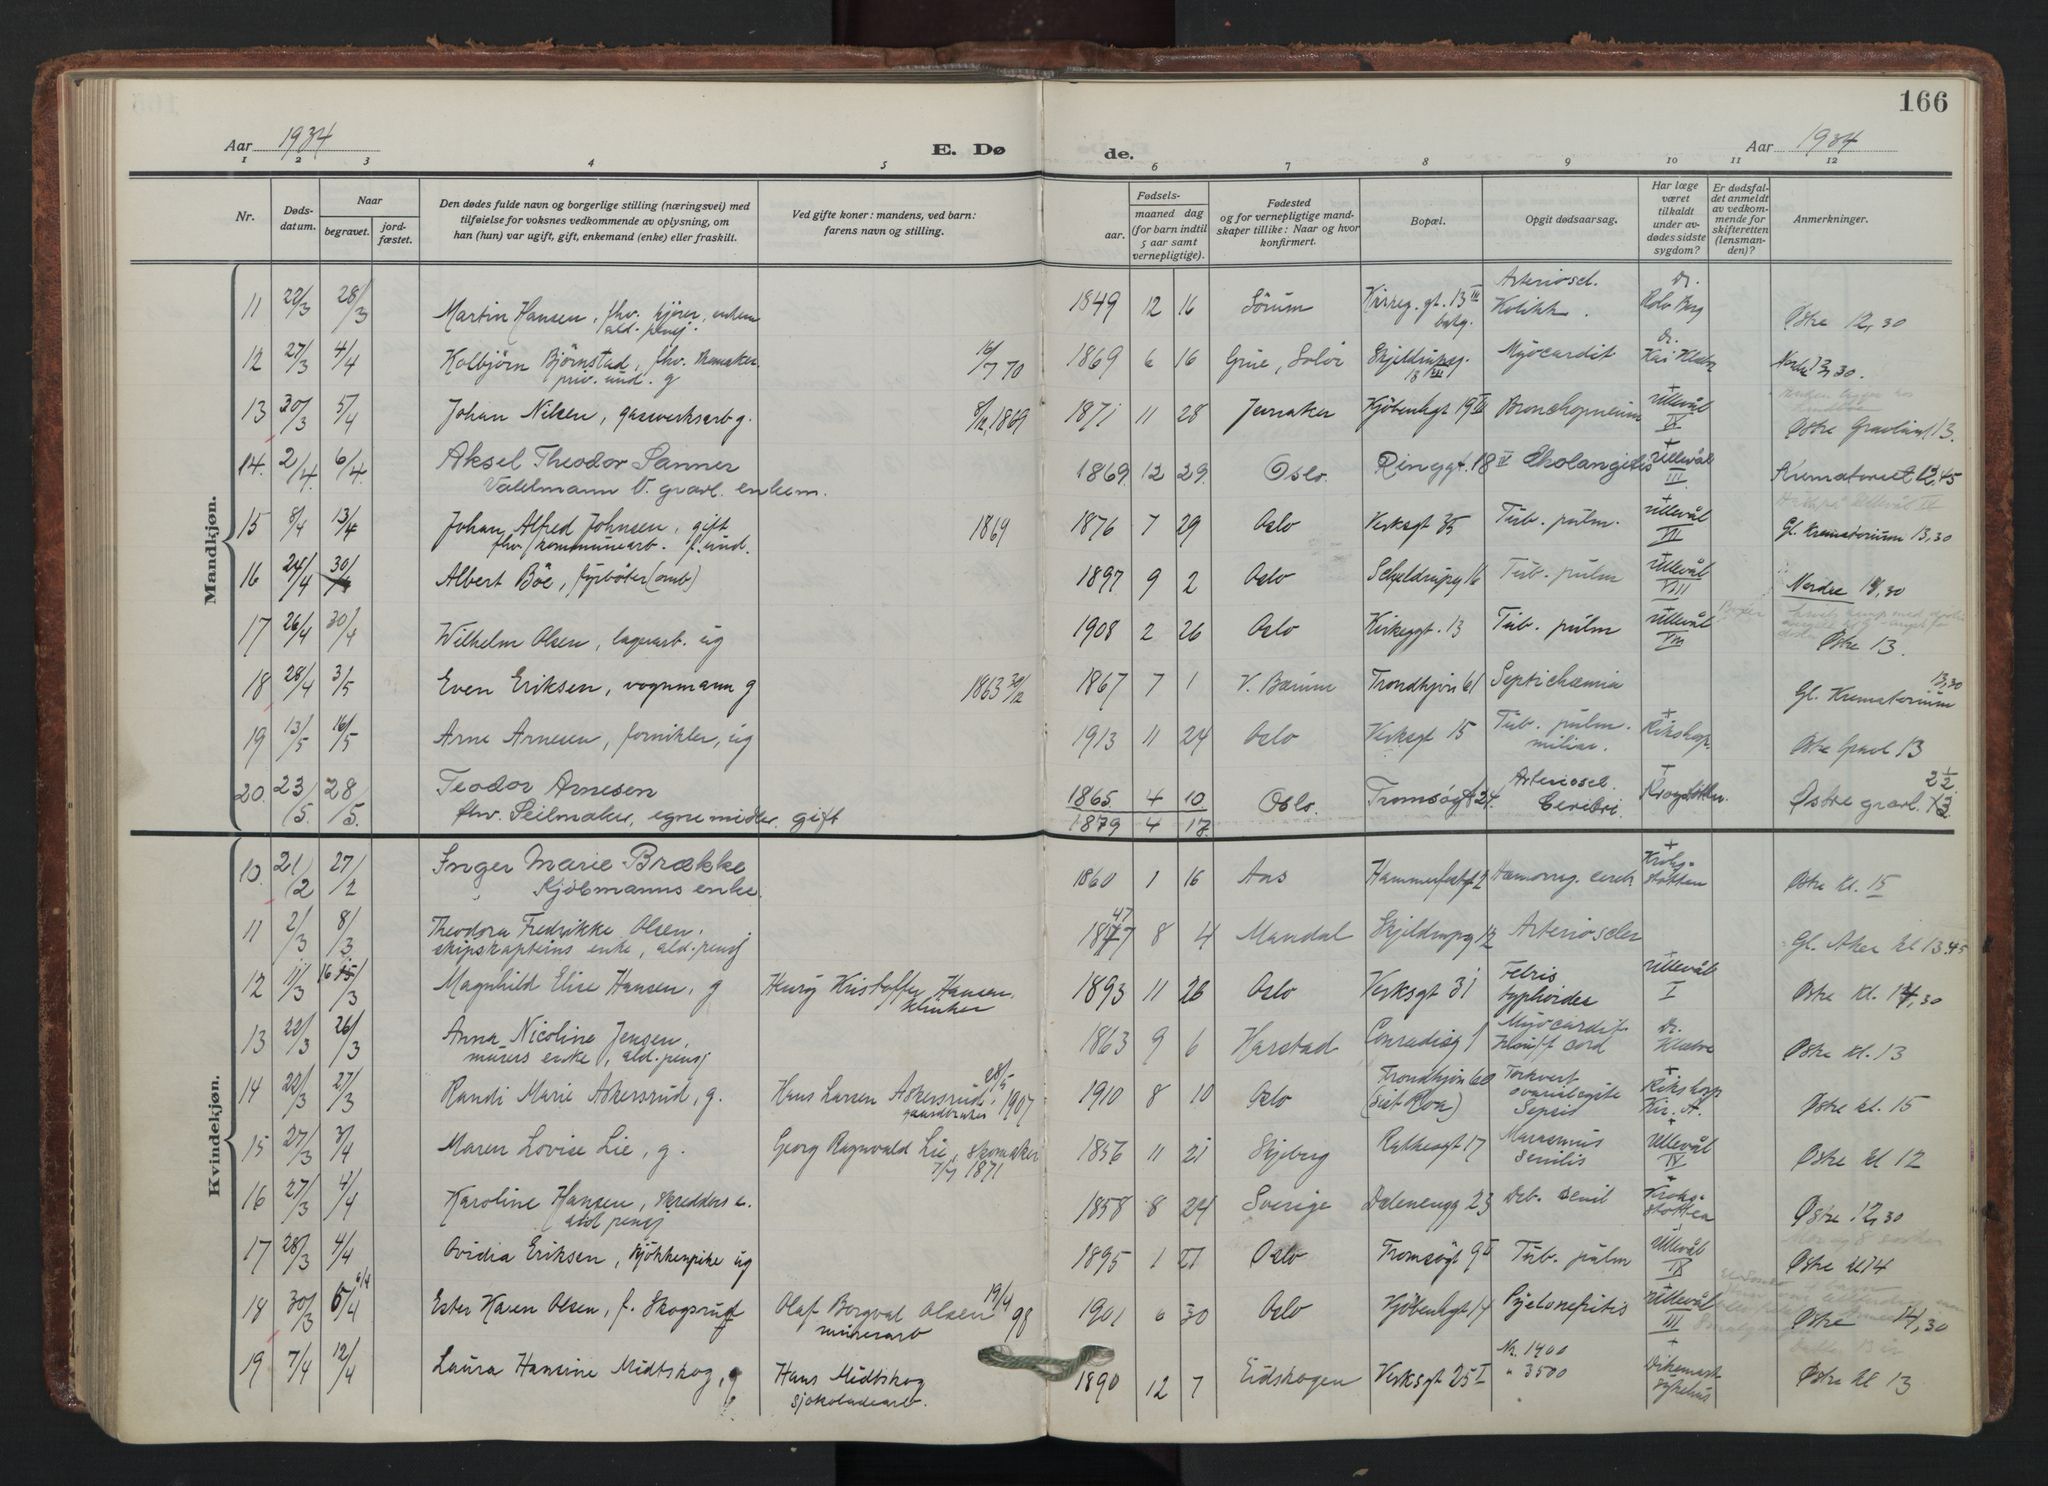 166
Aar 1934
E. Dø
de.
Aar 1934
1 2 3 4 5 6 7 8 9 10 11 12
Nr.
Døds-
datum.
Naar
begravet.
jord-
fæstet.
Den dødes fulde navn og borgerlige stilling (næringsvei) med
tilføielse for voksnes vedkommende av oplysning, om
han (hun) var ugift, gift, enkemand (enke) eller fraskilt.
Ved gifte koner: mandens, ved barn:
farens navn og stilling.
Fødsels-
aar.
maaned dag
(for barn indtil
5 aar samt
vernepligtige).
Fødested
og for vernepligtige mand-
skaper tillike: Naar og hvor
konfirmert.
Bopæl.
Opgit dødsaarsag.
Har læge
været
tilkaldt
under av-
dødes sidste
sygdom?
Er dødsfal-
det anmeldt
av vedkom-
mende for
skifteretten
(lensman-
den)?
Anmerkninger.
Mandkjøn.
11 22/3 28/3 Martin Hansen, fhv. kjører, enkem 1849 12 16 Sörum Kirkeg. gt. 13 III Arteriosel. Dr.
ald. pensj. Kolikk. Rolv Berg Østre 12,30
12 27/3 4/4 Kolbjörn Björnstad, fhv. 16/7 70 1869 6 16 Grue, Solör Skjeldrupsg. Myocardit Dr. Nordre 13,30.
priv. und. g 13 III
13 30/3 5/4 Johan Nilsen, gassverksarb g. 8/12 1869 1871 11 28 Jevnaker Kjöbenhgt 19 IV Bronchopneum + Ullevål IX Østre Gravlund 13.
14. 2/4. 6/4. Aksel Theodor Sanner 1869. 12 29. Oslo. Ringgt. 18 IV Cholangitis + Ullevål III Krematoriet 12,45
V. gravl. enkem.
15 8/4 13/4 Johan Alfred Johnsen, gift 1869 1876 7 29 Oslo Verksgt 35 Tub. pulm. + Ullevål VII Gl. Krematorium 13,30
fhv. kommunearb. f. und.
16 24/4 30/4 Albert Böe, fyrböter (omb) 1897 9 2 Oslo Schjeldrupg 16 Tub. pulm + Ullevål VIII Nordre 14,30
17 26/4 30/4 Wilhelm Olsen, lagerarb. ug 1908 2 26 Oslo Kirkeggt. 13 Tub. pulm + Ullevål VIII Østre 13.
18 28/4 3/5 Even Eriksen, vognmann g 1863 30/12 1867 7 1 V. Bærum Trondhjsv 61 Septichæmia 13,30
Gl. Krematorium
19 13/5 16/5 Arne Arnesen, fornikler, ug 1913 11 24 Oslo Verksgt 15 Tub. pulm. + Rikshosp. Østre Gravl 13
miliar.
20. 23/5. 28/5. Teodor Arnesen 1865. 4 10 Oslo. Tromsögt 24. Arteriosel. + Krogstötten. Østre gravl. 2 1/2
fhv. Seilmaker, egne midler. gift 1879 4 17 Cerebri.
Kvindekjøn.
10. 21/2 27/2 Inger Marie Brække 1860 1 16 Aas Hammerfestgt 2 Hæmorrag. cerebr + Krohg- Østre kl. 15
Kjöbmanns enke. stötten
11 2/3 8/3 Theodora Fredrikke Olsen. 47 1877 8 4 Mandal Skjeldrupg 12 Arterioscler Gl. Aker kl 13.45
skipskapteins enke, ald. pensj
12 11/3 16 15/3 Magnhild Elise Hansen, g Henry Kristoffer Hansen. 1893 11 26 Oslo Verksgt 31 Febris + Ullevål I Østre Kl. 14,30
typhoidea
13 22/3 26/3 Anna Nicoline Jensen, 1863 9 6 Harstad Conradisg 1 Myocardit. Dr. Østre Kl. 13
murers enke, ald. pensj insuff cord
14 22/3 27/3 Randi Marie Askersrud, g. Hans Larsen Askersrud, 28/5 1907 1910 8 10 Oslo Trondhjsv 60 Torkvert + Rikshosp Østre kl. 15
gaardbruker (sist Roa) ovarialcyste Kir. A.
Sepsis
15 27/3 3/4 Maren Lovise Lie, g. Georg Ragnvald Lie, skomaker 1856 11 21 Skjeberg Rathkesgt 17 Marasmus + Ullevål IV Østre kl 12
7/7 1871 senilis
16 27/3 4/4 Karoline Hansen, skredders e. 1858 8 24 Sverige Dælenengg 23 Deb. senil + Krohg- Østre 12,30
ald pensj stötten
17 28/3 4/4 Ovidia Eriksen, kjökkenpike ug 1895 1 21 Oslo Tromsögt 9 I Tub. pulm Ullevål IX Østre kl 14
18 30/3 5/4 6/4 Ester Karen Olsen, f. Skogsrud Olaf Borgvald Olsen 19/4 98 1901 6 30 Oslo Kjöbenhgt 14 Pyelonefritis + Ullevål III Østre 14,30
murerarb
19 7/4 12/4 Laura Hansine Midtskog, g Hans Midtskog 1890 12 7 Eidskogen Verksgt 25 I Nr. 1400 + Dikemark Østre kl 13
sjokoladearb. " 3500 sykehus